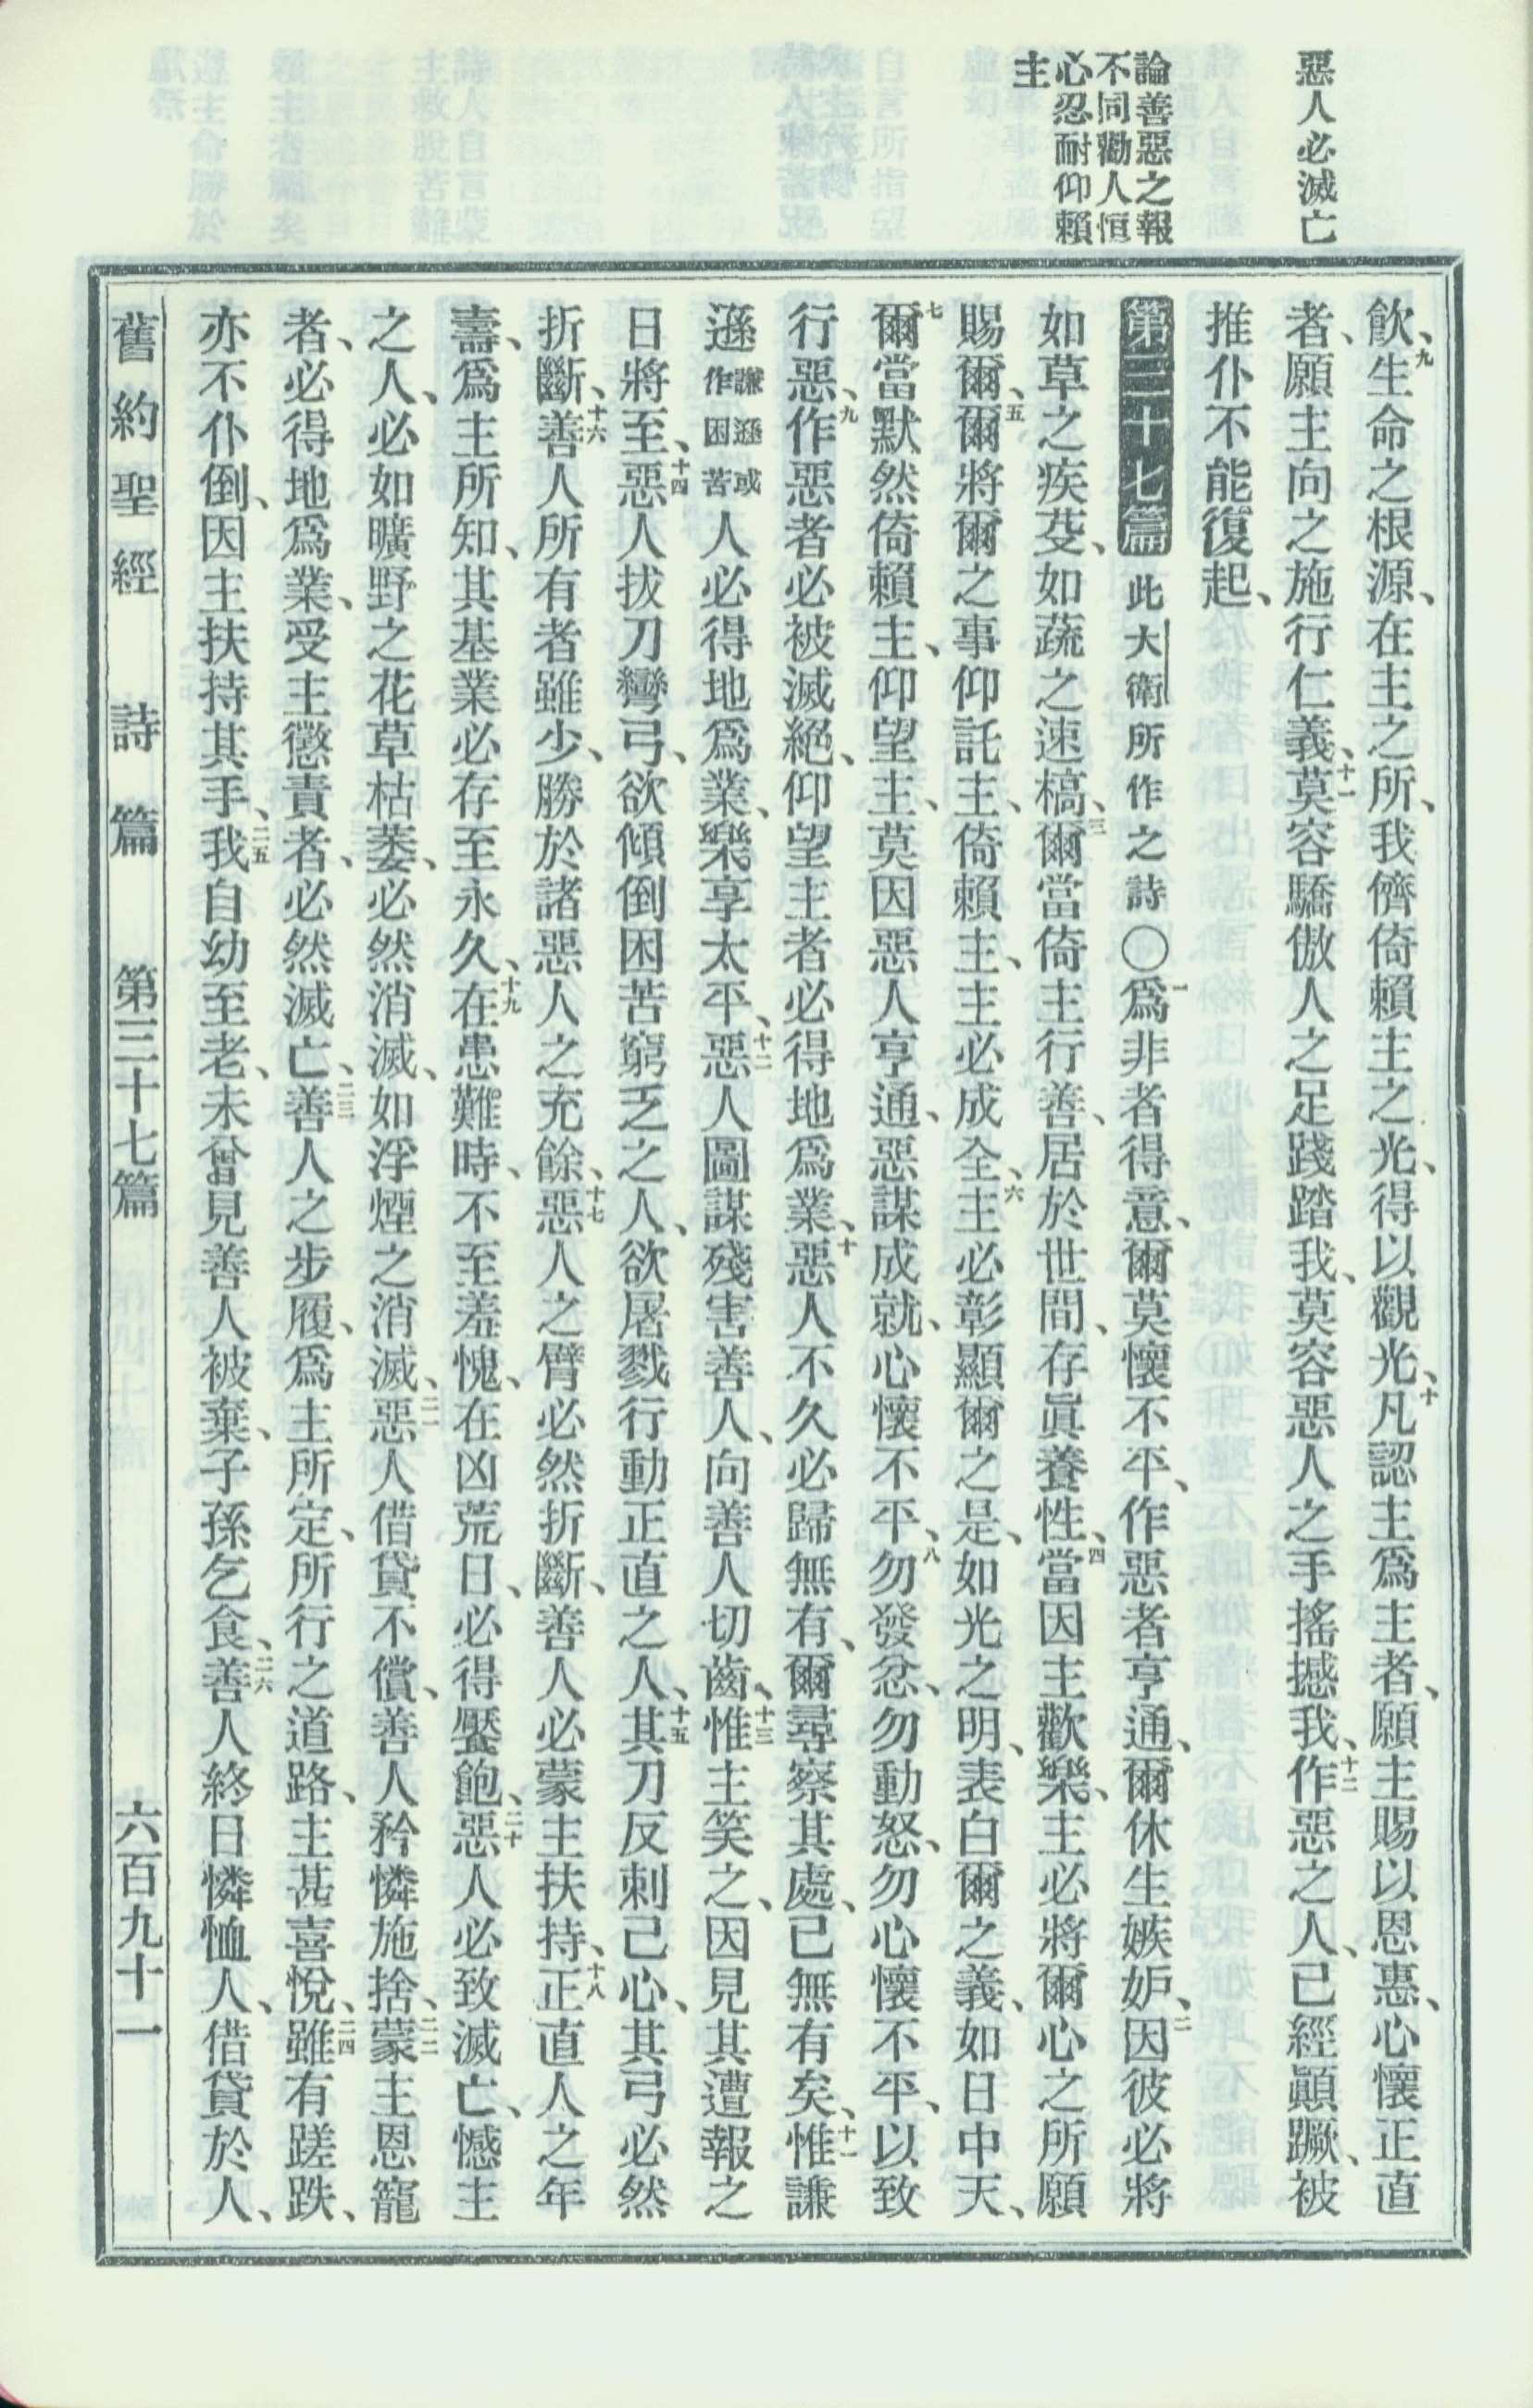 惡人必滅亡
論善惡之報
不同勸人恒
心忍耐仰賴
主
飲、九生命之根源、在主之所、我儕倚賴主之光、得以觀光、十凡認主爲主者、願主賜以恩惠、心懷正直
者、願主向之施行仁義、十一莫容驕傲人之足踐踏我、莫容惡人之手搖撼我、十二作惡之人、已經顚蹶、被
推仆不能復起、
第三十七篇 此大衛所作之詩〇一爲非者得意、爾莫懷不平、作惡者亨通、爾休生嫉妒、二因彼必將
如草之疾芟、如蔬之速槁、三爾當倚主行善、居於世間、存眞養性、四當因主歡樂、主必將爾心之所願
賜爾、五爾將爾之事仰託主、倚賴主、主必成全、六主必彰顯爾之是、如光之明、表白爾之義、如日中天、
七爾當默然倚賴主、仰望主、莫因惡人亨通、惡謀成就、心懷不平、八勿發忿、勿動怒、勿心懷不平、以致
行惡、九作惡者必被滅絕、仰望主者必得地爲業、十惡人不久必歸無有、爾尋察其處、已無有矣、十一惟謙
遜謙遜或作困苦人必得地爲業、樂享太平、十二惡人圖謀殘害善人、向善人切齒、十三惟主笑之、因見其遭報之
日將至、十四惡人拔刀彎弓、欲傾倒困苦窮乏之人、欲屠戮行動正直之人、十五其刀反刺己心、其弓必然
折斷、十六善人所有者雖少、勝於諸惡人之充餘、十七惡人之臂必然折斷、善人必蒙主扶持、十八正直人之年
壽、爲主所知、其基業必存至永久、十九在患難時、不至羞愧、在凶荒日、必得饜飽、二十惡人必致滅亡、憾主
之人、必如曠野之花草枯萎、必然消滅、如浮煙之消滅、二一惡人借貸不償、善人矜憐施捨、二二蒙主恩寵
者、必得地爲業、受主懲責者、必然滅亡、二三善人之步履、爲主所定、所行之道路、主甚喜悅、二四雖有蹉跌、
亦不仆倒、因主扶持其手、二五我自幼至老、未曾見善人被棄、子孫乞食、二六善人終日憐恤人、借貸於人、
舊約聖經 詩篇 第三十七篇 六百九十一